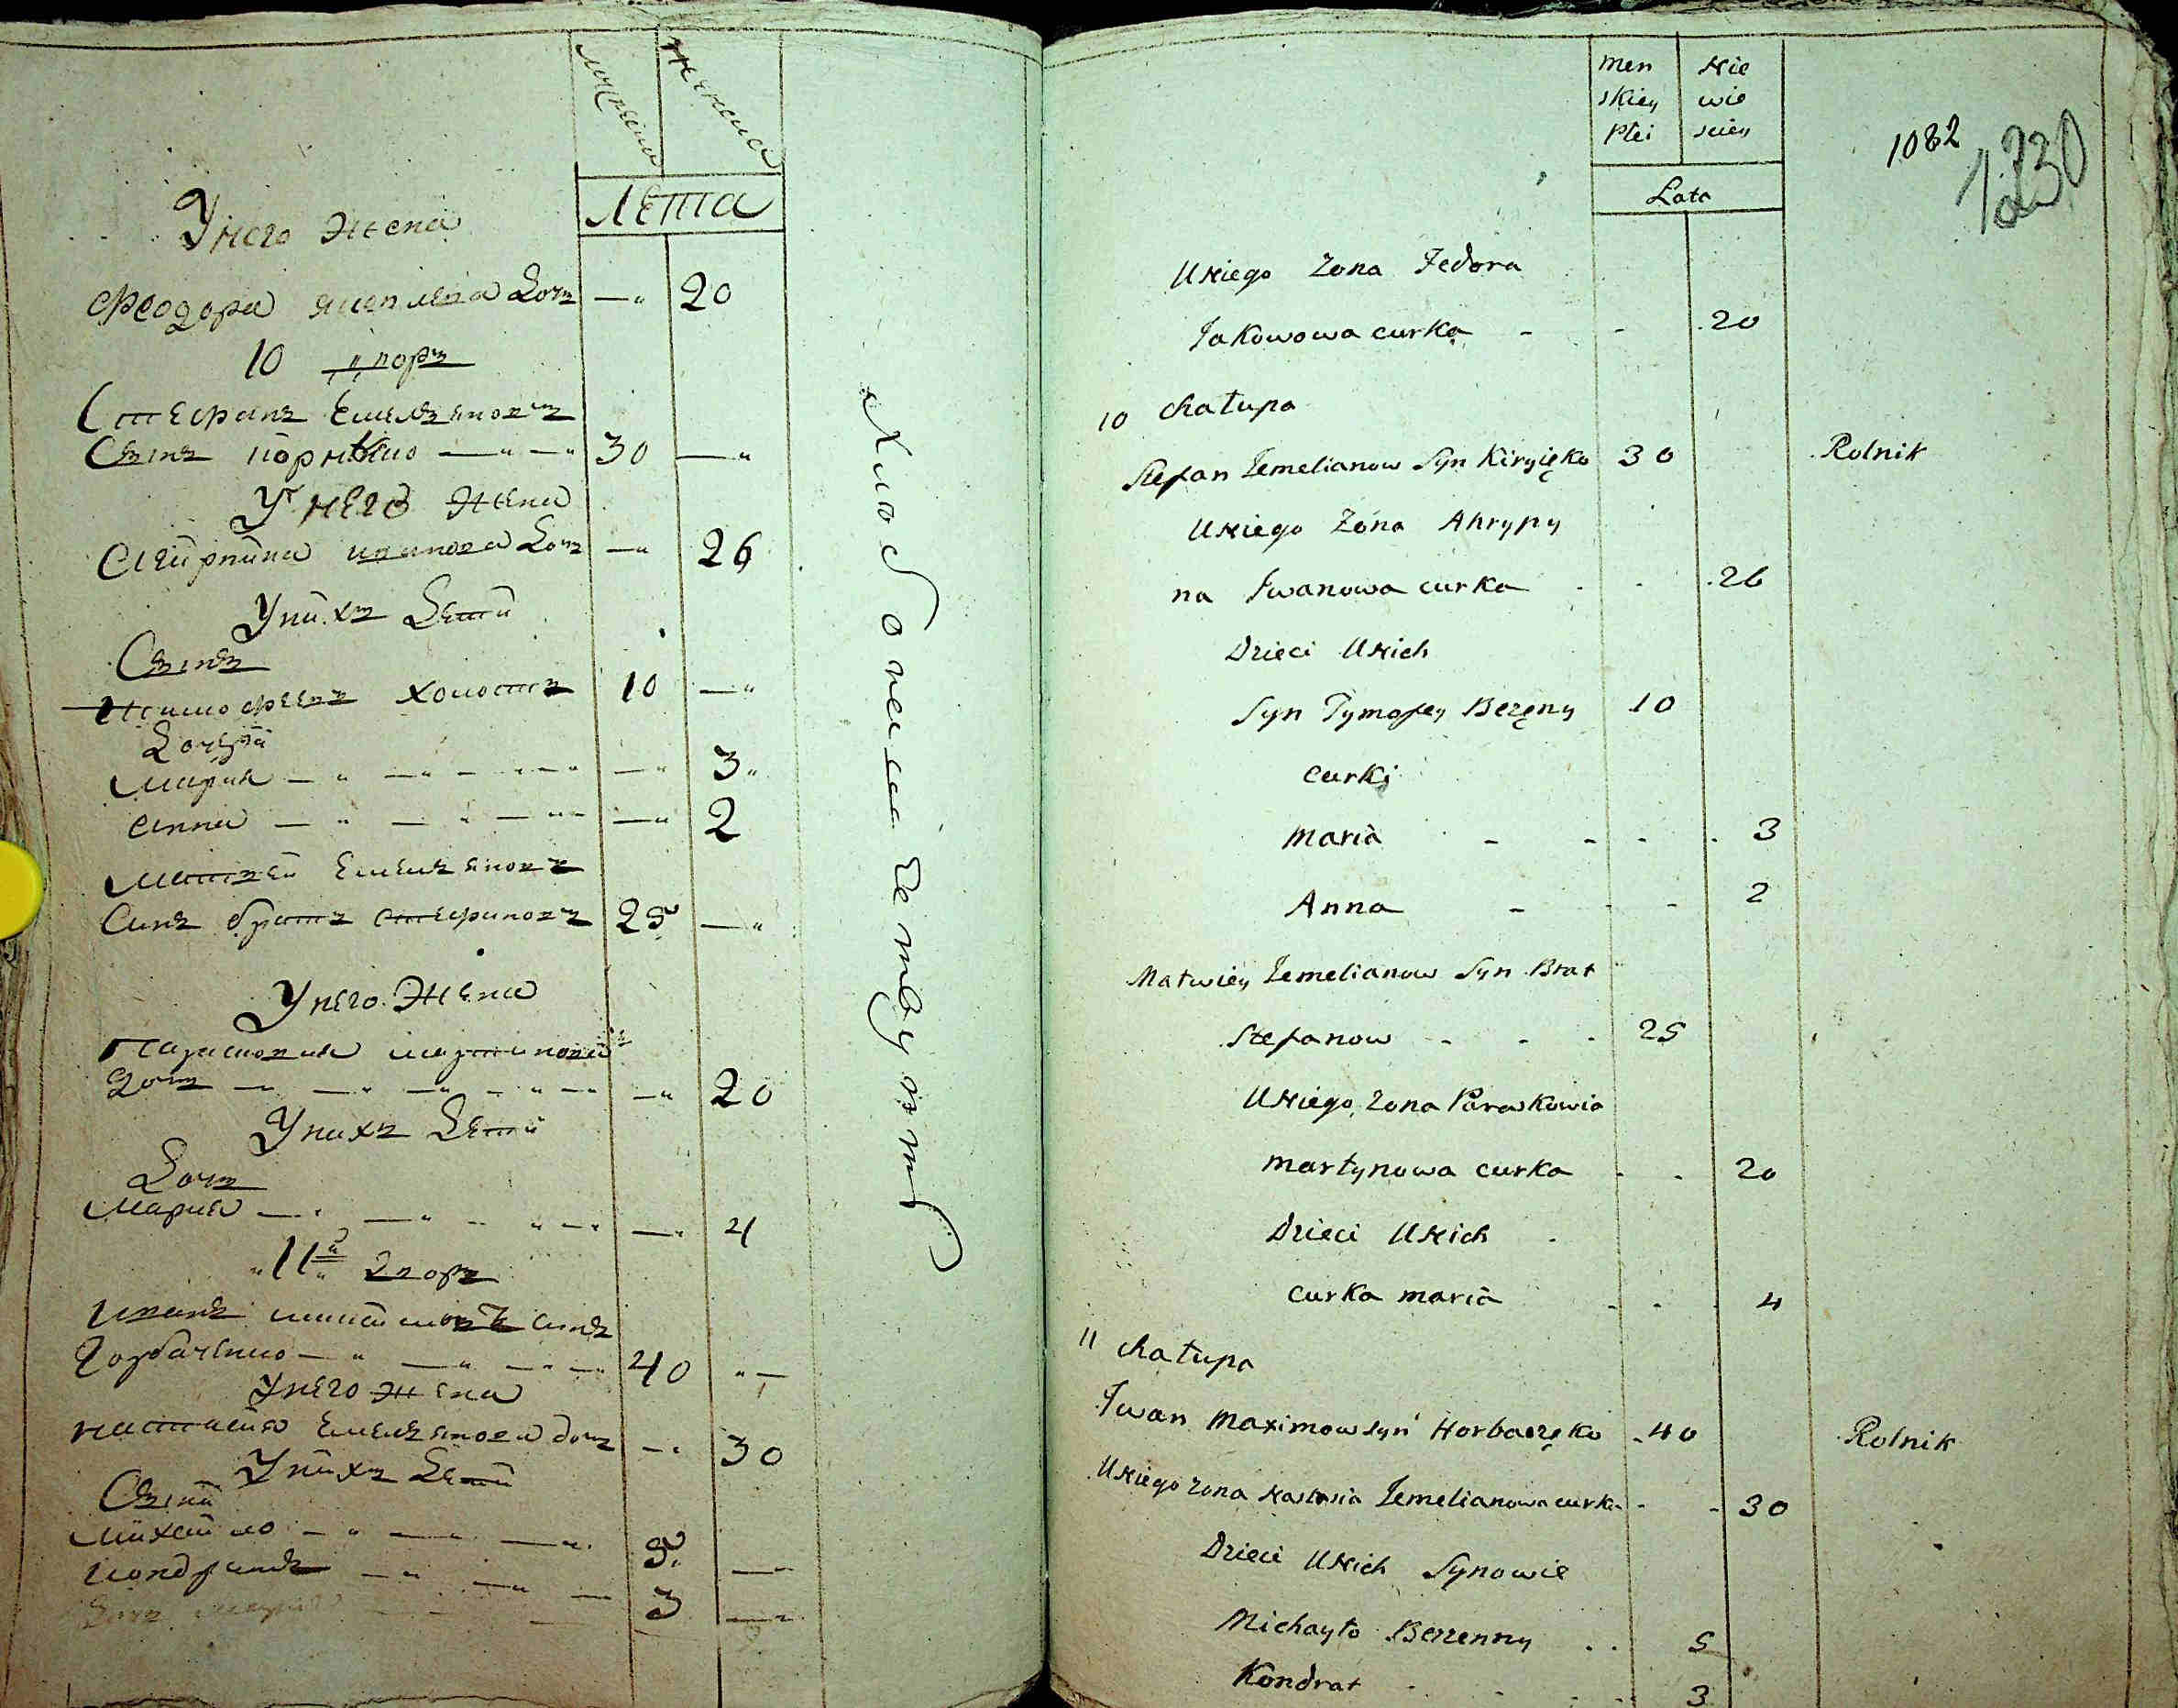 лета
У него жена
Феодора яковлева дочь — 20
10 дворъ
Стефанъ Емельяновъ
Сынъ кориѣнко — 30 —
У него жена
Агрипина иванова дочь — 26
У нихъ дети
Сынъ
тимофей холостъ 10 —
Дочери
Мария — 3
Анна — 2
Матвей Емельяновъ
Сынъ братъ стефановъ 25 —
У него жена
Парасковия мартинова
дочь — 20
У нихъ дети
Дочь
Мария — 4
11й дворъ
Иванъ максимовъ синъ
Горбаченко — 40 —
У него жена
настасия Емельянова дочь — 30
У нихъ дети
Сыны
Михайло — 5 —
Кондратъ — 3 —
дочь мария
men Nie
skiey wie
Płci sciey
1082
1230
Lata
U Niego Zona Fedora
Jakowowa curka - - 20
10 Chałupa
Stefan Jemelianow Syn Kiryięko 30 Rolnik
U Niego Zona Ahrypy
na Iwanowa curka - - 26
Dzieci U Nich
Syn Tymofey Bezęny 10
curki
Maria - - - - 3
Anna - - - 2
Matwiey Jemelianow Syn Brat
Stefanow - - - 25
U Niego Zona Paraskowia
Martynowa curka - - 20
Dzieci U Nich
curka maria - - - 4
11 Chałupa
Iwan Maximow syn Horbaczęko 40 Rolnik
U Niego zona Nastasia Jemelianowa curka - - 30
Dzieci U Nich Synowie
Michayło Bezzenny - - 5
Kondrat - - - 3